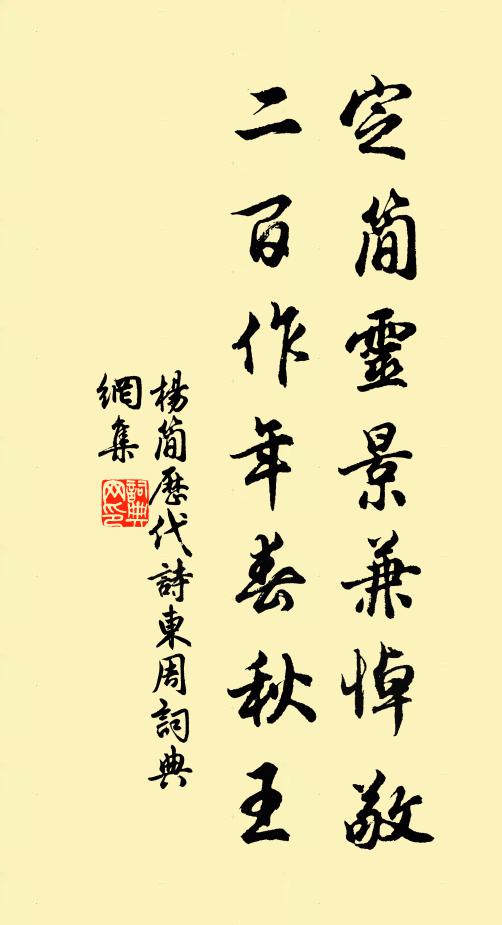 定簡靈景兼悼敬
二百作年春秋王
楊簡歷代詩東周詞典
網集
詞典
网印